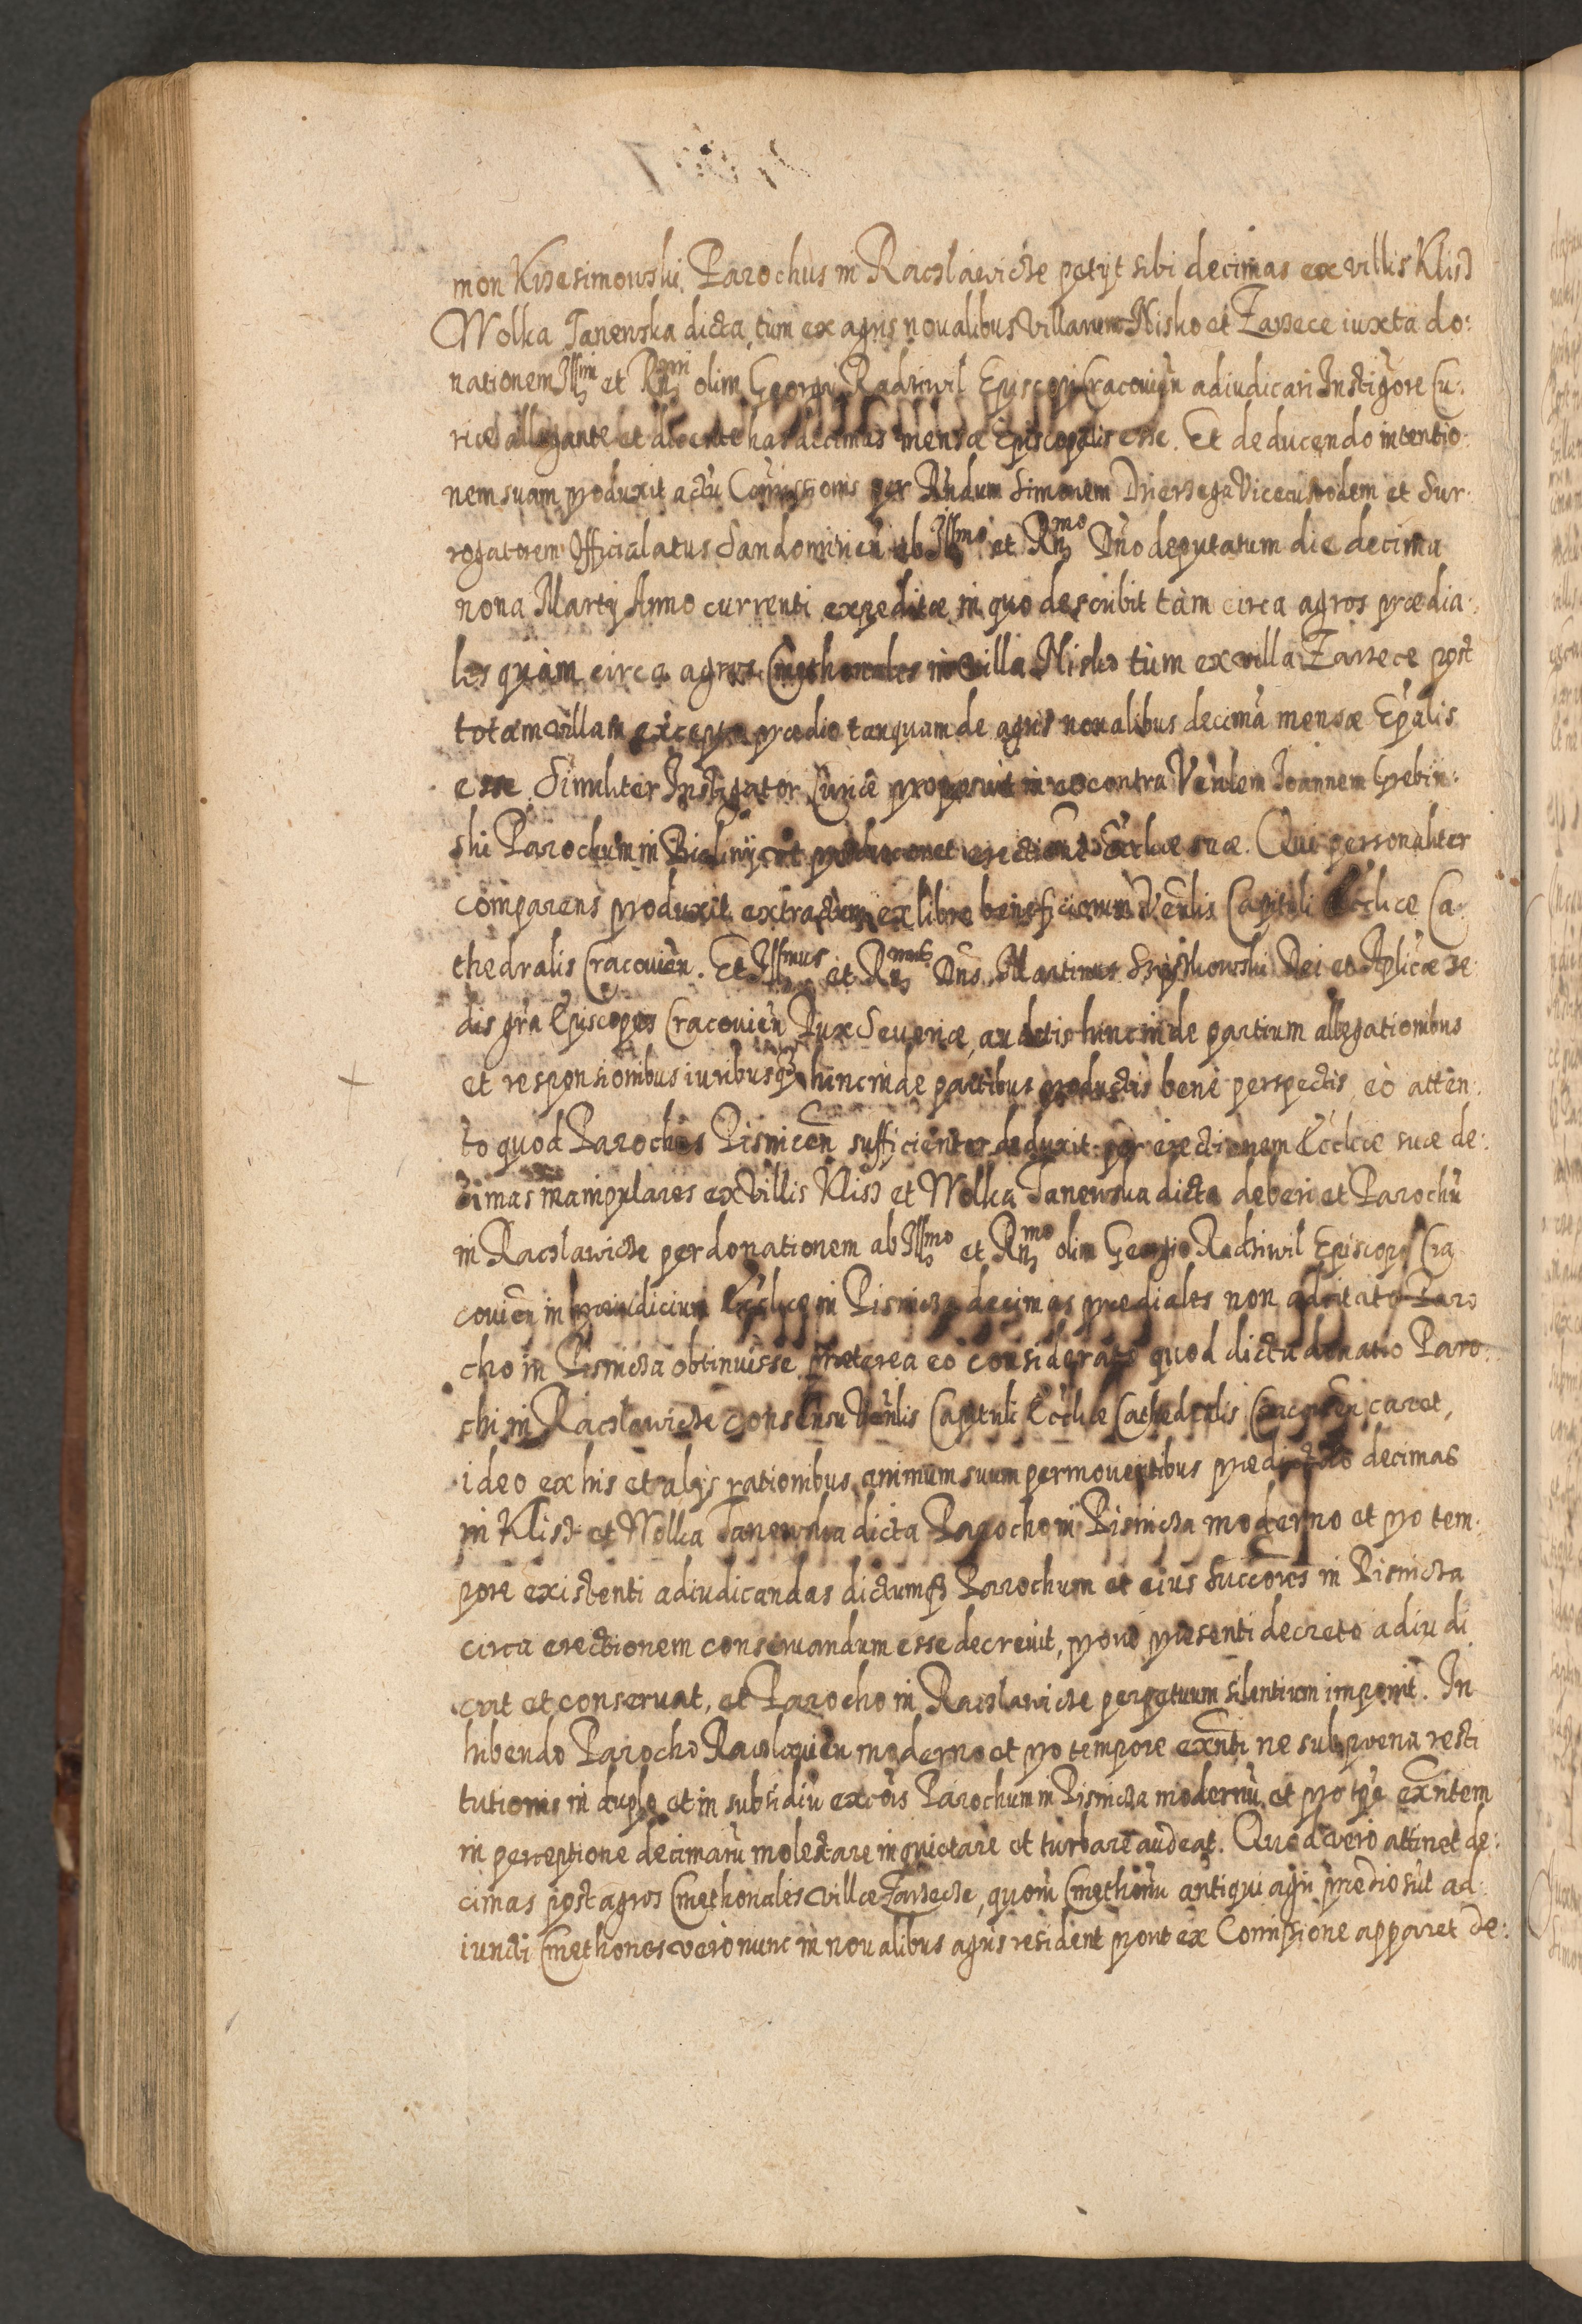 mon Krzesimowski, Parochus in Raczlawicze petijt sibi decimas ex villis Klisz
Wolka Tanewska dicta, tùm ex agris noualibus villarum Nisko et Zarzece iuxta do:
nationem Illmi et Rndmi olim Georgij Radziwil Episcopi Cracouien̄ adiudicari Instigatore Cu:
riæ allegante et dicente has decimas mensæ Episcopalis esse. Et deducendo intentio:
nem suam produxit actū Com̄issionis per Rndum Simonem Dzierzega Vicecustodem et Sur:
rogatorem Officialatus Sandomirien̄ ab Illmo et Rndmo Dn̄o deputatum die decima
nona Martij Anno currenti expeditæ in quo describit tàm circa agros prædia:
les quàm circa agros Cmethonales in villa Nisko tùm ex villa Zarzece post
totam villam excepto prædio tanquam de agris noualibus decimā mensæ Ep̄alis
esse. Similiter Instigator Curiæ proposuit in eo contra Ven̄lem Ioannem Grebin:
ski Parochum in Bieliny, ut produceret erectionē Eccl̄iæ suæ. Qui personaliter
comparens produxit extractum ex libro beneficiorum Ven̄lis Capituli Eccl̄iæ Ca:
thedralis Cracouien̄. Et Illmus et Rndmus Dn̄s Martinus Szyszkowski Dei et Ap̄licæ se:
dis gr̄a Episcopus Cracouien̄ Dux Seueriæ, auditis hincinde partium allegationibus
et responsionibus iuribusq̄ hincinde partibus productis benè perspectis, eò atten:
to quod Parochus Pisnicen̄ sufficienter deduxit per erectionem Eccl̄iæ suæ de:
cimas manipulares ex villis Klisz et Wolka Tanewska dicta deberi et Parochū
in Raczlawicze per donationem ab Illmo et Rndmo olim Georgio Radziwil Episcopo Cra
couien̄ in præiudicium Eccl̄iæ in Pisnicza decimas prædiales non adcitato Paro
cho in Pisnicza obtinuisse. Præterea eò considerato quod dicta donatio Paro:
chi in Raczlawicze consensu Ven̄lis Capituli Eccl̄iæ Cathedralis Cracouien̄ caret,
ideo ex his et alijs rationibus animum suum permouentibus prædictas decimas
in Klisz et Wolka Tanewska dicta Parocho in Pisnicza moderno et pro tem:
pore existenti adiudicandas dictumq̄ Parochum et eius Succ̄ores in Pisnicza
circa erectionem conseruandum esse decreuit, prout præsenti decreto adiudi
cat et conseruat, et Parocho in Raczlawicze perpetuum silentium imponit. In
hibendo Parocho Raczlauien̄ moderno et pro tempore exn̄ti ne sub pœna resti
tutionis in duplo et in subsidiū exc̄ois Parochum in Pisnicza modernū et pro tp̄e exn̄tem
in perceptione decimarū molestare inquietare et turbare audeat. Quod verò attinet de:
cimas post agros Cmethonales villæ Zarzecze, quorū Cmethonū antiqui agri prædio sūt ad:
iuncti Cmethones verò nunc in noualibus agris resident prout ex Com̄issione apparet de: